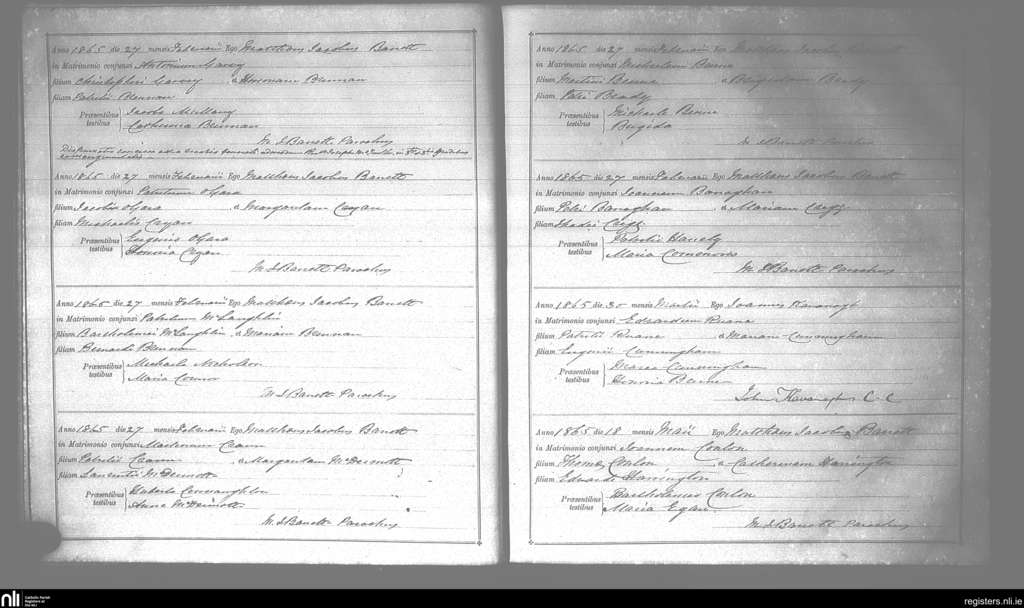 Anno 1865 die 27 mensis Februarii Ego Matthaeus Jacobus Barrett
in Matrimonio conjunxi Antonium Garvy
filium Christopheri Garvey & Honoriam Brennan
filiam Patritii Brennan
Præsentibus testibus Jacobo Mullany
Catherina Brennan
M J Barrett Parochus
Dispensatis
consanguinitatis
Anno 1865 die 27 mensis Februarii Ego Matthaeus Jacobus Barrett
in Matrimonio conjunxi Patritium O'Gara
filium Jacobi O'Gara & Margaritam Cryan
filiam Michaelis Cryan
Præsentibus testibus Eugenio O'Gara
Honoria Cryan
M J Barrett Parochus
Anno 1865 die 27 mensis Februarii Ego Matthaeus Jacobus Barrett
in Matrimonio conjunxi Patritium McLaughlin
filium Bartholomei McLaughlin & Mariam Brennan
filiam Bernardi Brennan
Præsentibus testibus Michaele Nicholson
Maria Connor
M J Barrett Parochus
Anno 1865 die 27 mensis Februarii Ego Matthaeus Jacobus Barrett
in Matrimonio conjunxi
filium Patritii & Margaritam McDermott
filiam Laurentii McDermott
Præsentibus testibus Roberto Connaughton
Anna McDermott
M J Barrett Parochus
Anno 1865 die 27 mensis Februarii Ego Matthaeus Jacobus Barrett
in Matrimonio conjunxi Michaelem Beirne
filium Martini Beirne & Brigidam Brady
filiam Petri Brady
Præsentibus testibus Michaele Beirne
Brigida
M J Barrett Parochus
Anno 1865 die 27 mensis Februarii Ego Matthaeus Jacobus Barrett
in Matrimonio conjunxi Joannem Banaghan
filium Petri Banaghan & Mariam
filiam Thadei
Præsentibus testibus Patritio
Maria
M J Barrett Parochus
Anno 1865 die 30 mensis Martii Ego Joannes Kavanagh
in Matrimonio conjunxi Edvardum Ruane
filium Patritii Ruane & Mariam Cunningham
filiam Eugenii Cunningham
Præsentibus testibus Cunningham
Honoria
John Kavanagh C. C.
Anno 1865 die 18 mensis Maii Ego Matthaeus Jacobus Barrett
in Matrimonio conjunxi Joannem Conlon
filium Thomae Conlon & Catherinam Harrington
filiam Edvardi Harrington
Præsentibus testibus Bartholomeo Conlon
Maria Egan
M J Barrett Parochus
nli Catholic Parish
Registers at
the NLI
registers.nli.ie